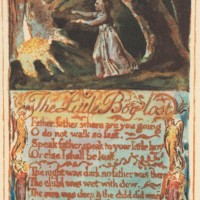 The Little Boy lost
Father, father, where are you going
O do not walk so fast.
Speak father, speak to your little boy
Or else I shall be lost,
The night was dark no father was there
The child was wet with dew.
The mire was deep, & the child did weep